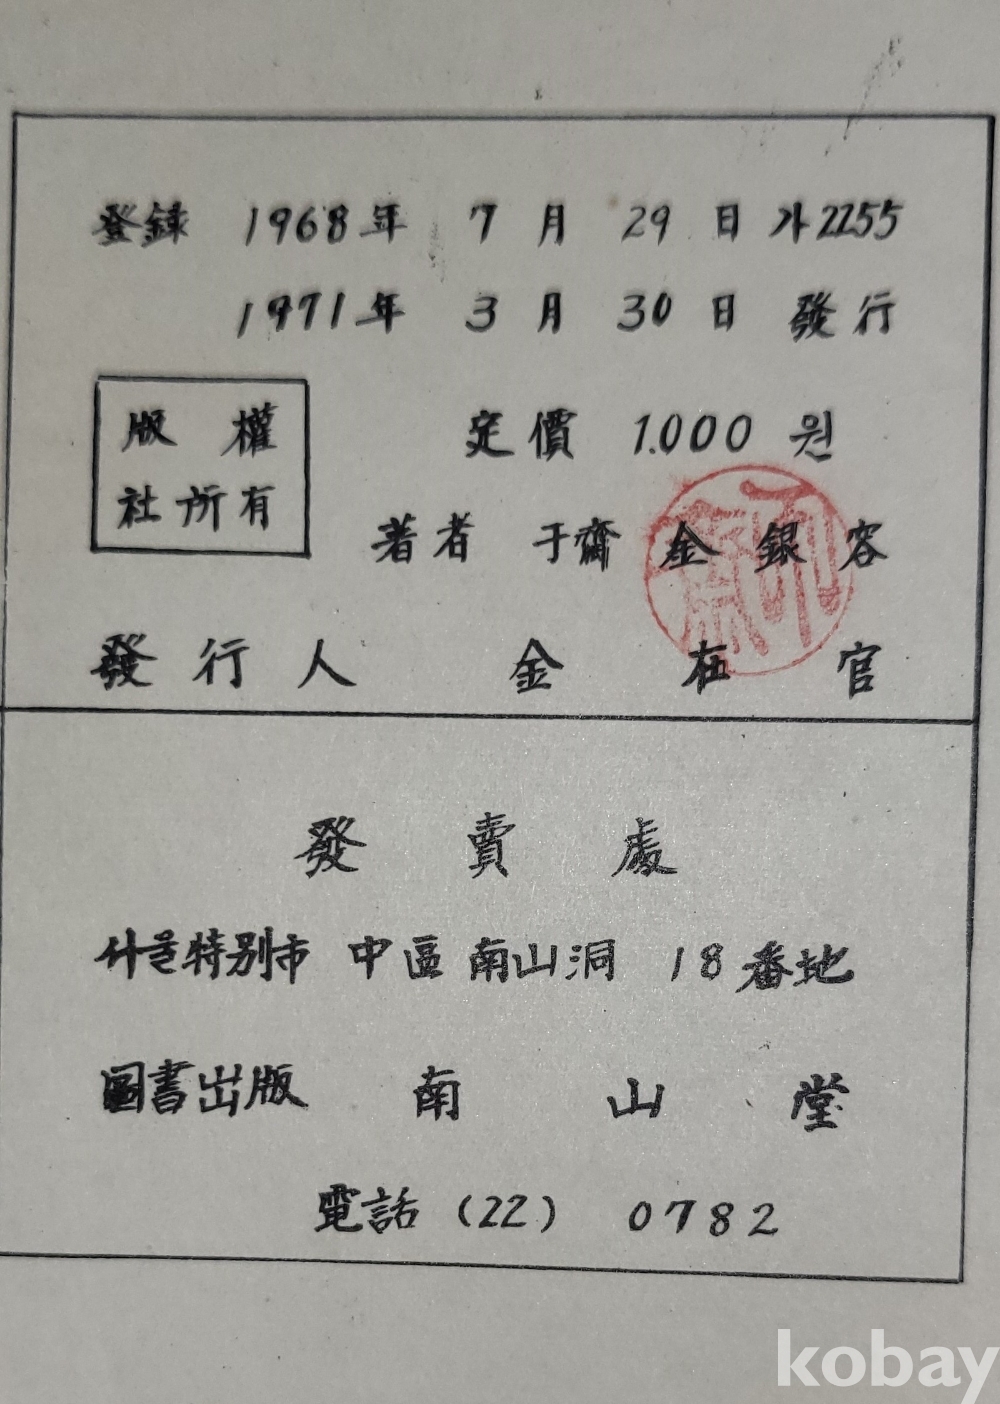 登録 1968年 7月 29日 가2255
1971年 3月 30日 發行
版權
社所有
定價 1.000 원
著者 于齋 金銀容
發行人 金在官
發賣處
서울特別市 中區 南山洞 18番地
圖書出版 南山堂
電話 (22) 0782
kobay